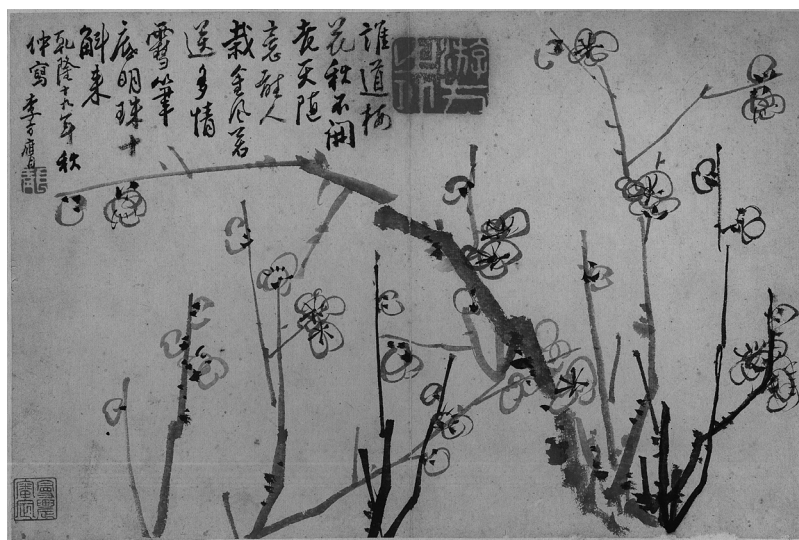 誰道梅
花秋不開
老天隨
意人
栽金風若
送多情
雪筆
底明珠十
斛来
乾隆十九年秋
仲寫 李方膺